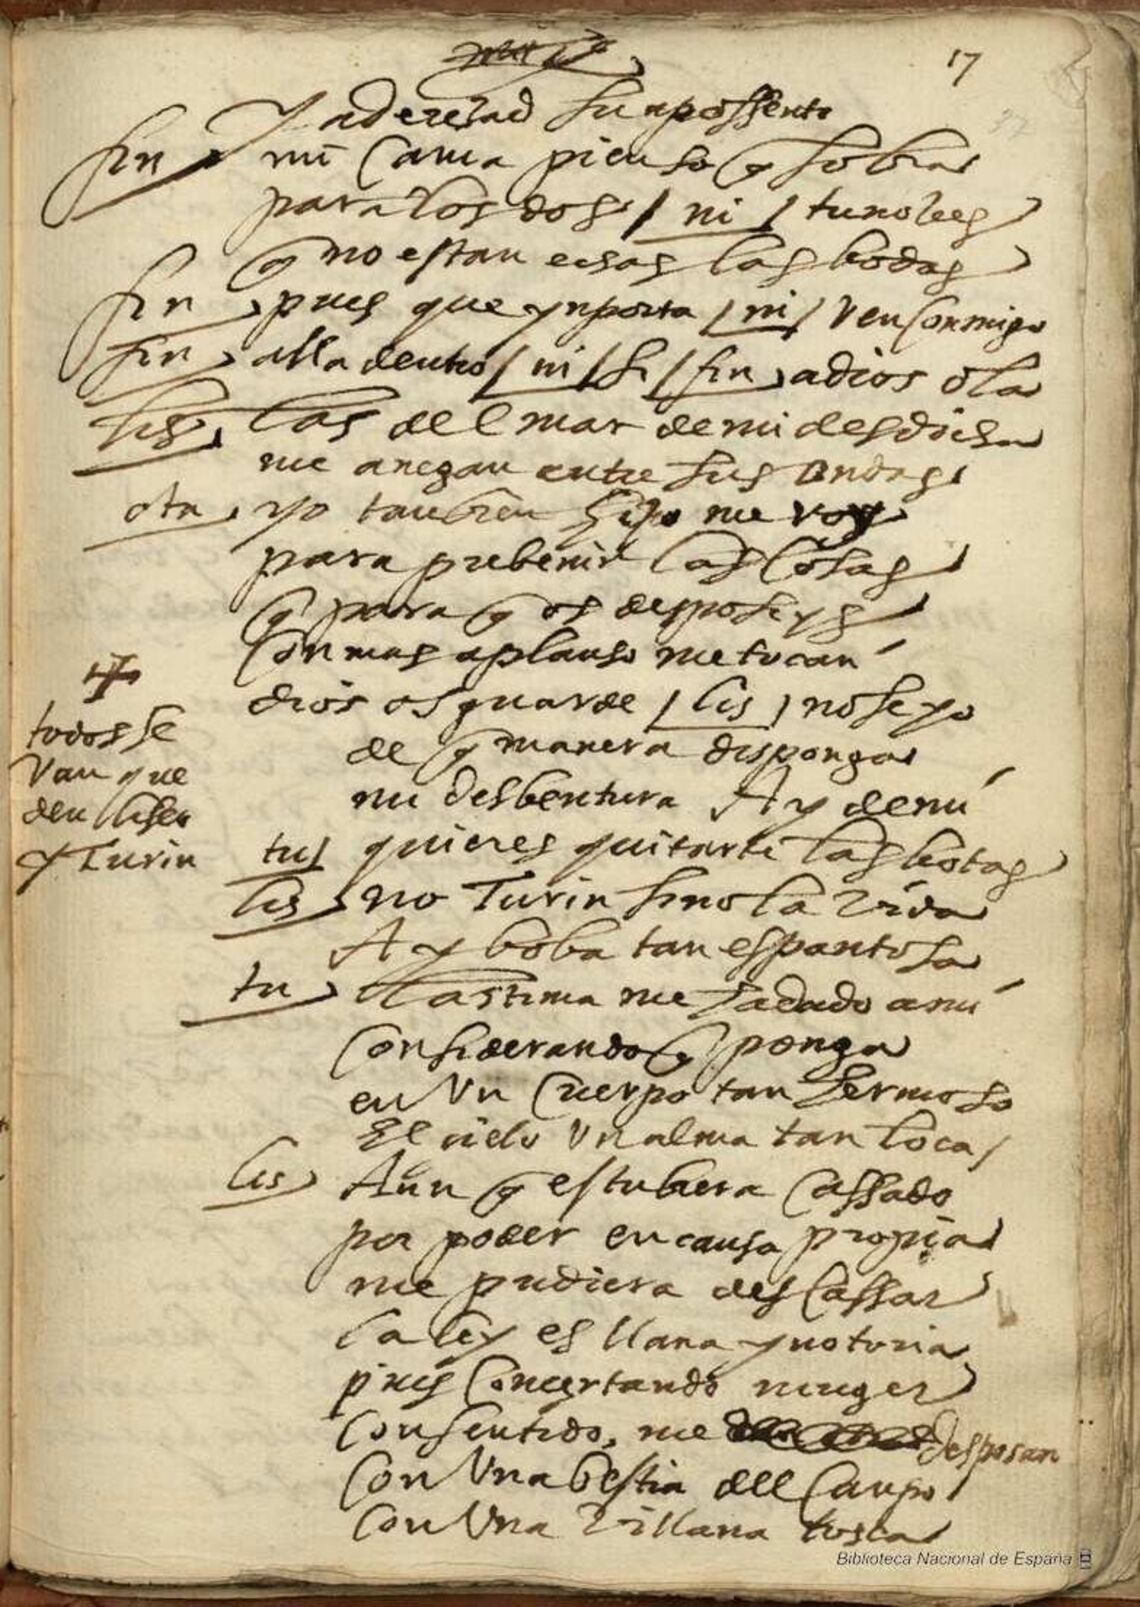 17
Y aderezad su apossento
fin mi cama pienso q sobra
para los dos / ni / tu no bees
q no estan echas las bodas
fin pues que ynporta / ni / ven conmigo
fin alla dentro / ni / si / fin adios ola
lis las del mar de mi desdicha
me anegan entre sus ondas
ota yo tanbien hijo me voy
para prebenir las cosas
q para q os desposeys
con mas aplauso me tocan
dios os guarde / lis / no se yo
de q manera disponga
mi desbentura Ay de mi
todos se
van que
den liser
y Turin
tu quieres quitarte las botas
lis no Turin sino la vida
Ay boba tan espantosa
tu lastima me ha dado a mi
considerando q ponga
en Un Cuerpo tan hermoso
El cielo Un alma tan loca
lis Aun q estubiera cassado
por poder en causa propia
me pudiera descassar
la ley es llana y notoria
pues concertando muger
con sentido, me desposan
con Una bestia del campo
con Una villana tosca
Biblioteca Nacional de España